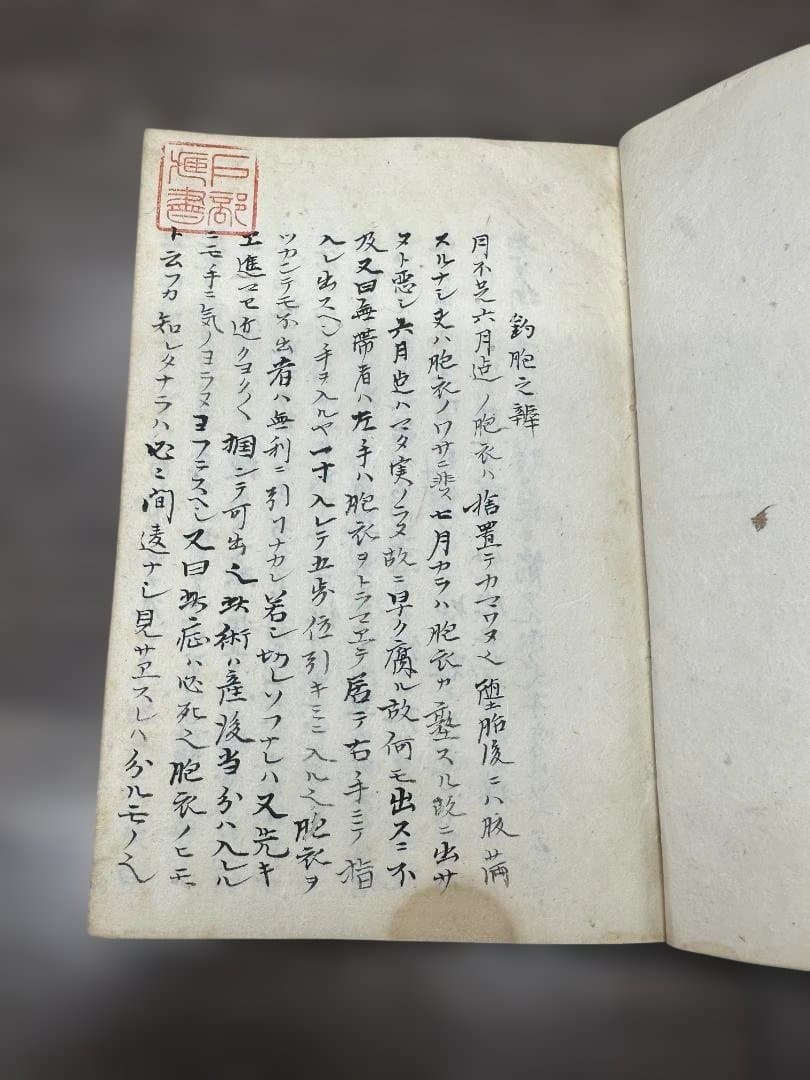 鈎胞之辨
月不足六月迠ノ胞衣ハ捨置テカマワヌ也堕胎後ニハ腹満
スルナシ夫ハ胞衣ノワサニ非ス七月カラハ胞衣カ塾スル故ニ出サ
ヌト悪シ六月迠ハマタ実ノラヌ故ニ早ク腐ル故何モ出スニ不
及又曰無帯者ハ左手ハ胞衣ヲトラマエテ居テ右手ニテ指
入レ出スヘシ手ヲ入ルヤ一寸入レテ五歩位引キミニ入ル也胞衣ヲ
ツカンテモ不出者ハ無利ニ引フナカレ若シ切レソフナレハ又先キ
エ進マセ近クヨクヨク掴ンテ可出也此術ハ産後当分ハ入レル
ニモ手ニ気ノヨラヌヨフニスヘシ又曰此症ハ必死也胞衣ノヒモ
ト云フカ知レタナラハ必ニ間違ナシ見サエスレハ分ルモノ也
戸部
書